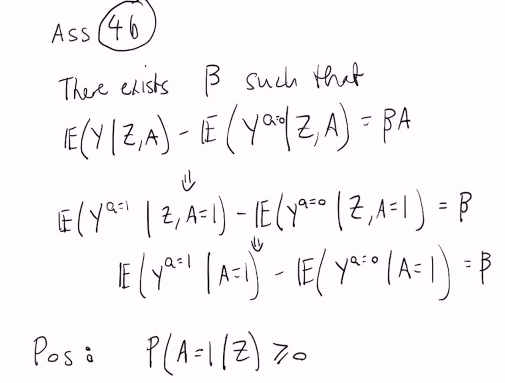 Ass 4b
There exists β such that
𝔼(Y|Z,A) - 𝔼(Y^{a=0}|Z,A) = βA
⇓
𝔼(Y^{a=1} | Z,A=1) - 𝔼(Y^{a=0} | Z,A=1) = β
⇓
𝔼(Y^{a=1} | A=1) - 𝔼(Y^{a=0} | A=1) = β
Pos: P(A=1|Z) ⩾ 0